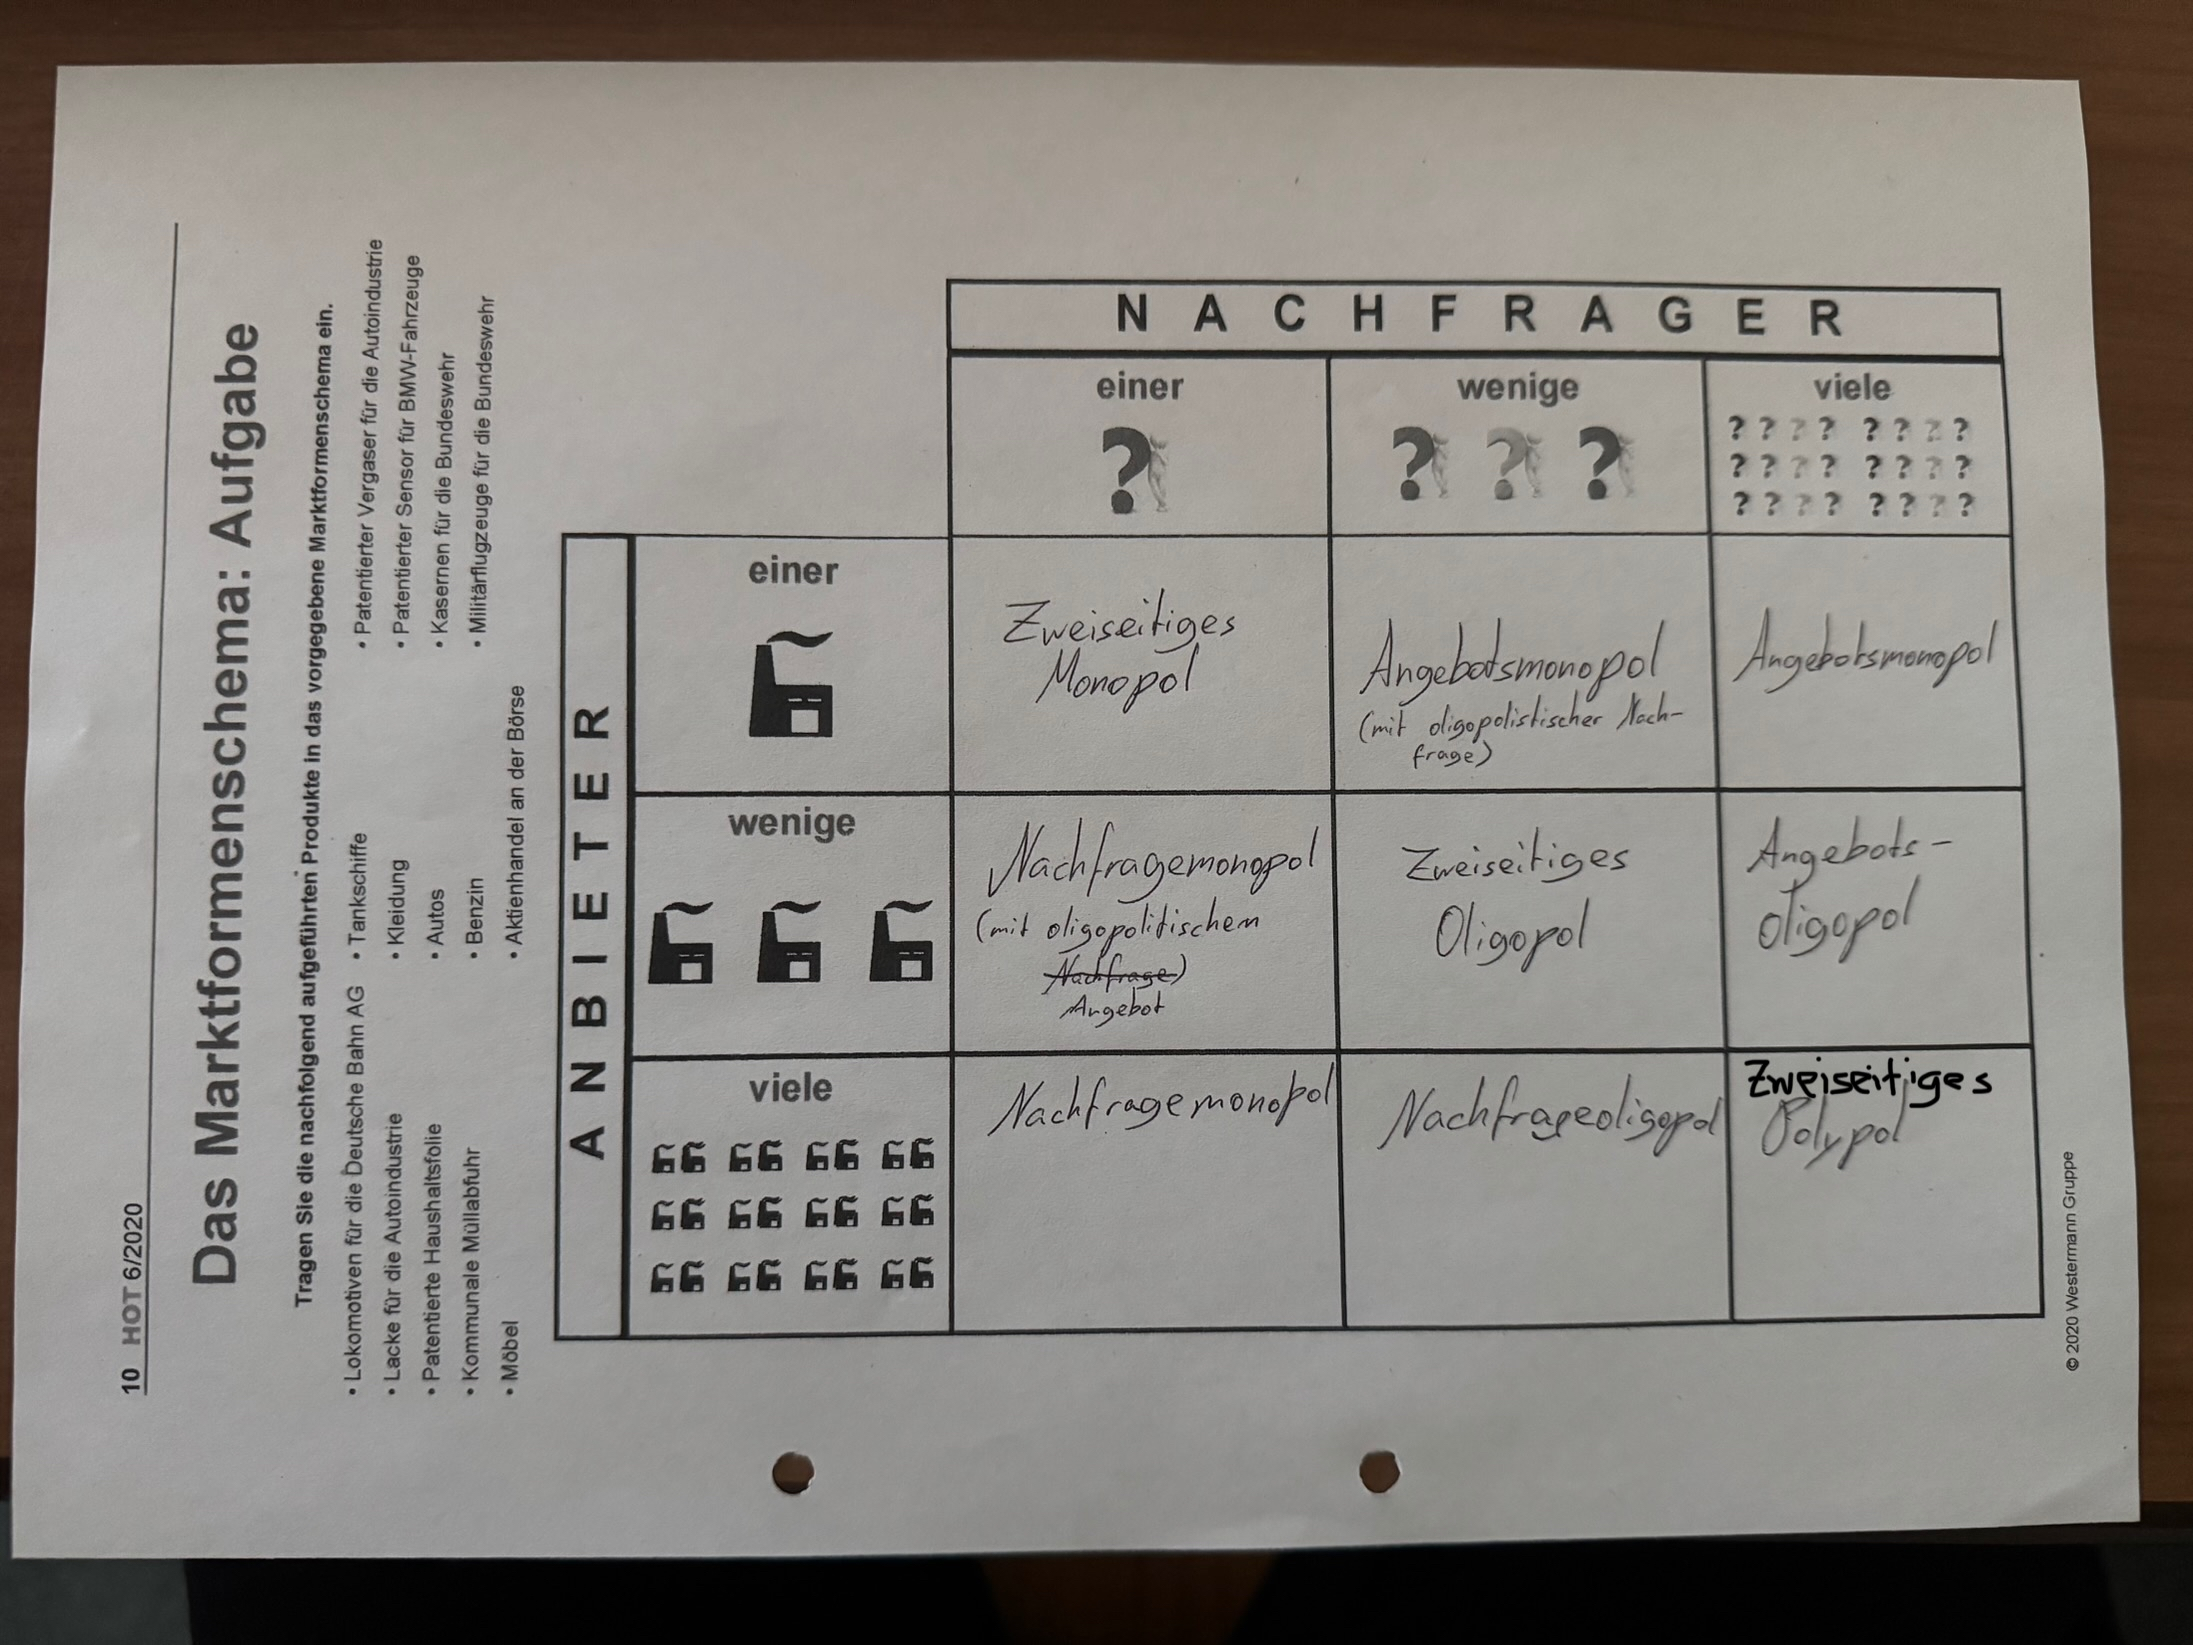 10 HOT 6/2020
Das Marktformenschema: Aufgabe
Tragen Sie die nachfolgend aufgeführten Produkte in das vorgegebene Marktformenschema ein.
• Lokomotiven für die Deutsche Bahn AG
• Lacke für die Autoindustrie
• Patentierte Haushaltsfolie
• Kommunale Müllabfuhr
• Möbel
• Tankschiffe
• Kleidung
• Autos
• Benzin
• Aktienhandel an der Börse
• Patentierter Vergaser für die Autoindustrie
• Patentierter Sensor für BMW-Fahrzeuge
• Kasernen für die Bundeswehr
• Militärflugzeuge für die Bundeswehr
NACHFRAGER
einer
wenige
viele
ANBIETER
einer
Zweiseitiges
Monopol
Angebotsmonopol
(mit oligopolistischer Nach-
frage)
Angebotsmonopol
wenige
Nachfragemonopol
(mit oligopolitischem
Nachfrage)
Angebot
Zweiseitiges
Oligopol
Angebots-
oligopol
viele
Nachfragemonopol
Nachfrageoligopol
Zweiseitiges
Polypol
© 2020 Westermann Gruppe